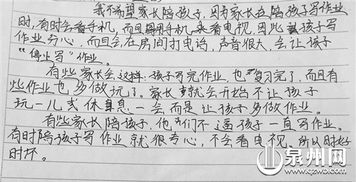 我不希望家长陪孩子,因为家长在陪孩子写作业
时,有时会看手机,而且用手机来看电视,因此孩子写
作业分心,而且会在房间打电话,声音很大,会让孩子
"停止写"作业。
有些家长会这样:孩子写完作业,也"复习完了,而且有
些作业也多做完了,家长就会开始不让孩子
玩一儿或休息息一会,而是让孩子多做作业。
有些家长陪孩子,他"们不逼孩子一直写作业。
有时陪孩子写作业就很专心,不会看电视。所以时好
时坏。
泉州网